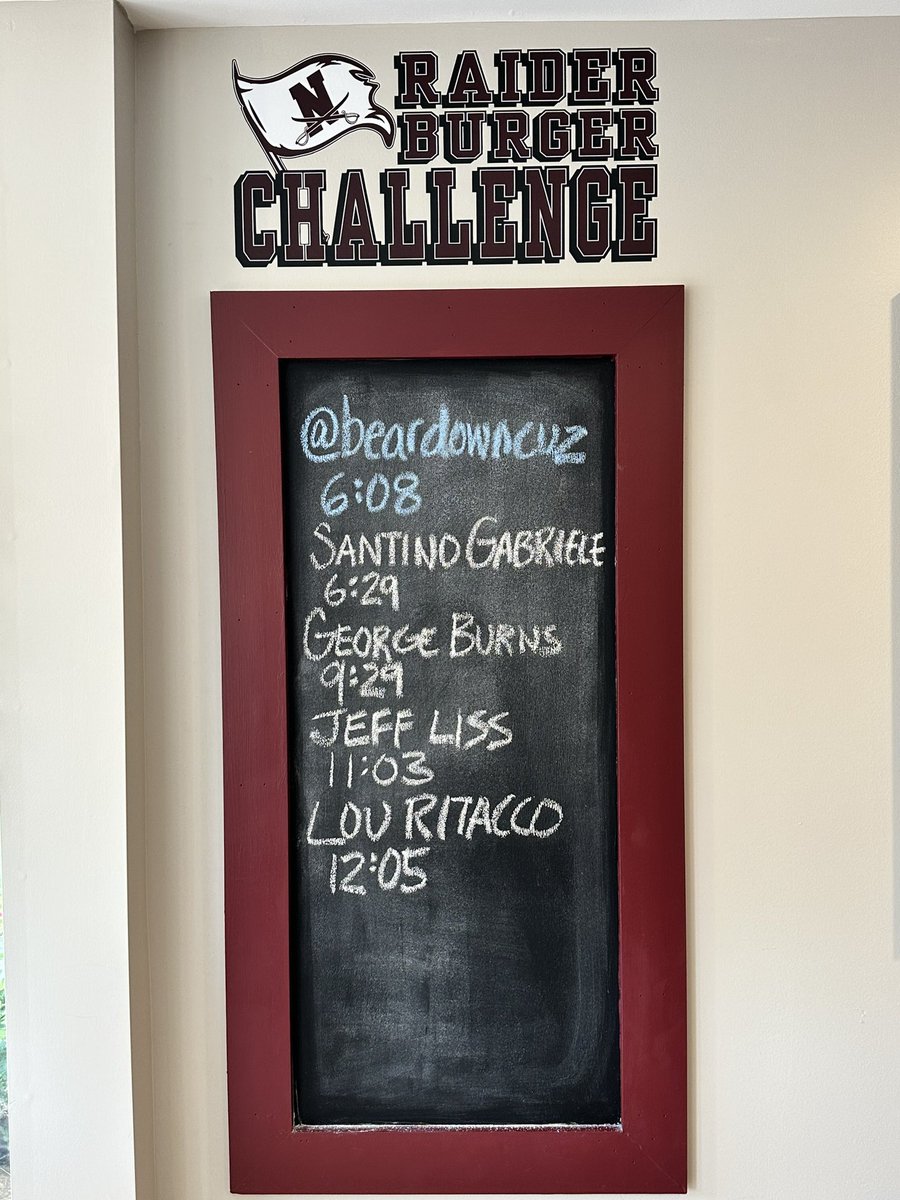 N
RAIDER
BURGER
CHALLENGE
@beardowncuz
6:08
SANTINO GABRIELE
6:29
GEORGE BURNS
9:29
JEFF LISS
11:03
LOU RITACCO
12:05